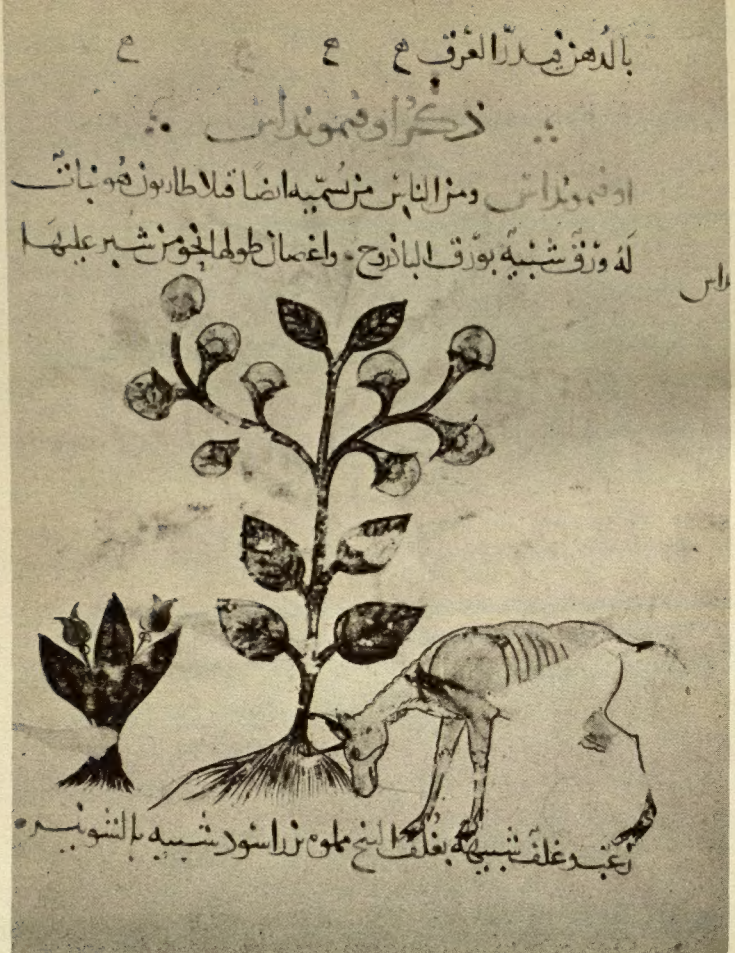 بالدُهن فيدرّ العَرَق ح ح ح
ذكر اوقيمونداس
اوقيمونداس ومن الناس من يُسمّيه ايضًا قيلاطاريون هُو نباتٌ
لَهُ ورَق شبيهٌ بوَرَق الباذروج واغصان طولها نحو من شبر عليهَا
زغب وغلف شبيهة بغُلف البنج مملوه بزرا اسود شبيه بالشونيز